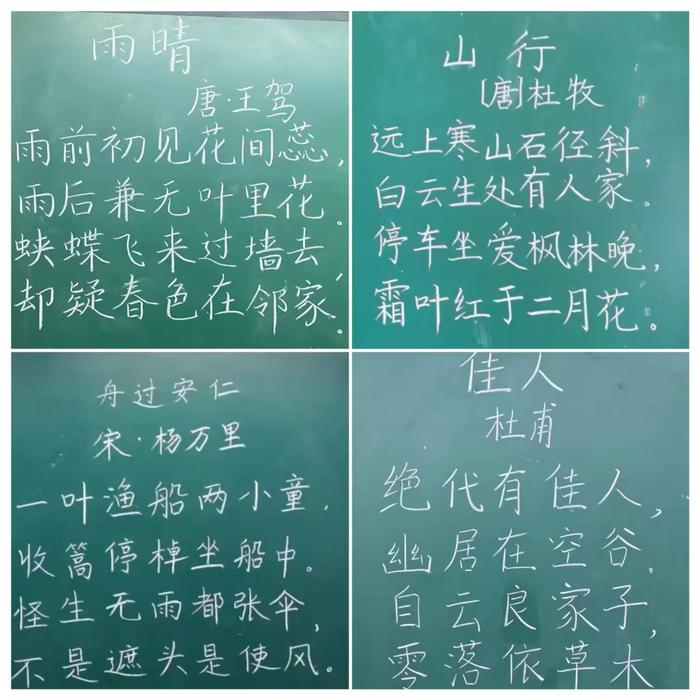 雨晴
唐·王驾
雨前初见花间蕊，
雨后兼无叶里花。
蛱蝶飞来过墙去，
却疑春色在邻家。
山行
[唐]杜牧
远上寒山石径斜，
白云生处有人家。
停车坐爱枫林晚，
霜叶红于二月花。
舟过安仁
宋·杨万里
一叶渔船两小童，
收篙停棹坐船中。
怪生无雨都张伞，
不是遮头是使风。
佳人
杜甫
绝代有佳人，
幽居在空谷。
自云良家子，
零落依草木